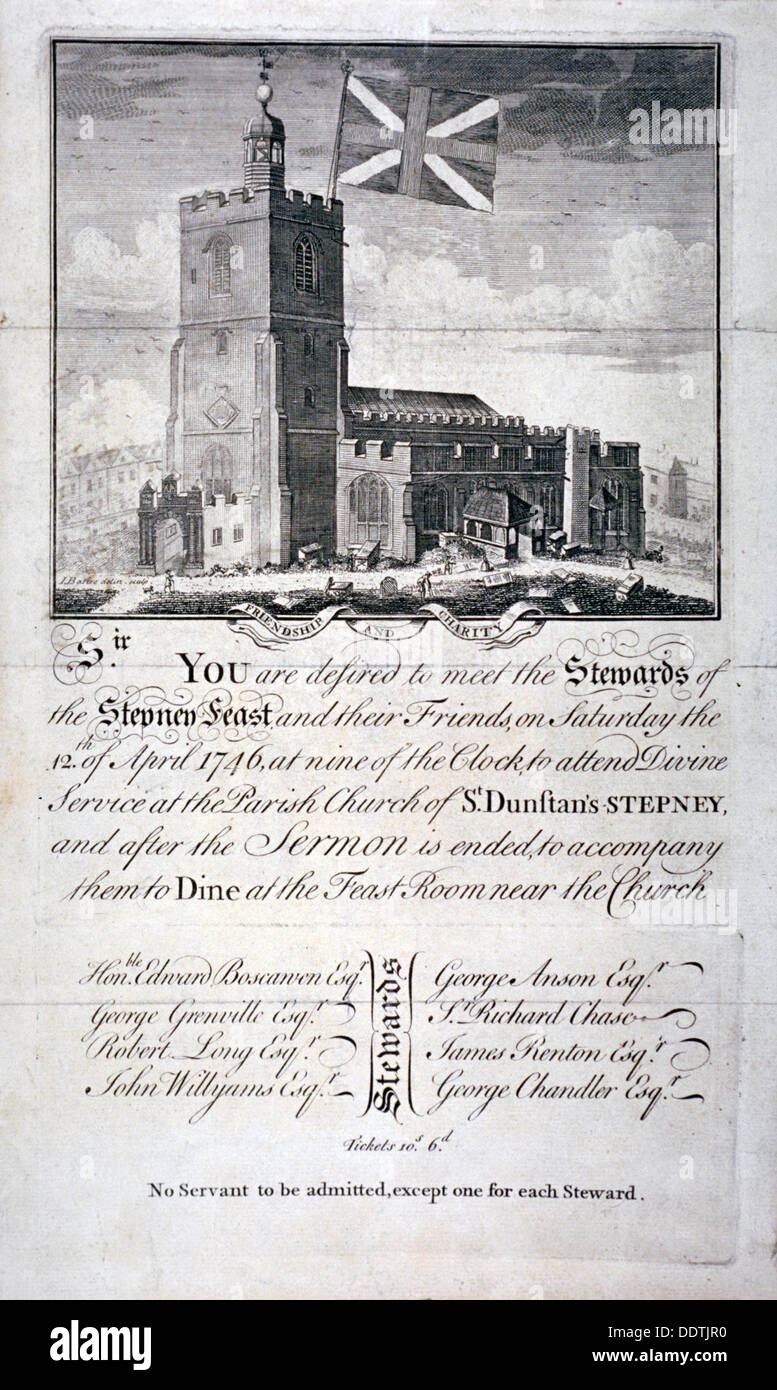 I.Bastre delin. sculp.
FRIENDSHIP AND CHARITY
S.ir
YOU are desired to meet the Stewards of
the Stepney Feast, and their Friends, on Saturday the
12.th of April 1746, at nine of the Clock, to attend Divine
Service at the Parish Church of St. Dunſtan's-STEPNEY,
and after the Sermon is ended, to accompany
them to Dine at the Feast Room near the Church
Stewards
Hon.ble Edward Boscawen Esq.r
George Grenville Esq.r
Robert Long Esq.r
John Willyams Esq.r
George Anson Esq.r
S.r Richard Chase
James Renton Esq.r
George Chandler Esq.r
Tickets 10.s 6.d
No Servant to be admitted, except one for each Steward.
alamy
alamy
alamy
alamy
Image ID: DDTJR0
www.alamy.com